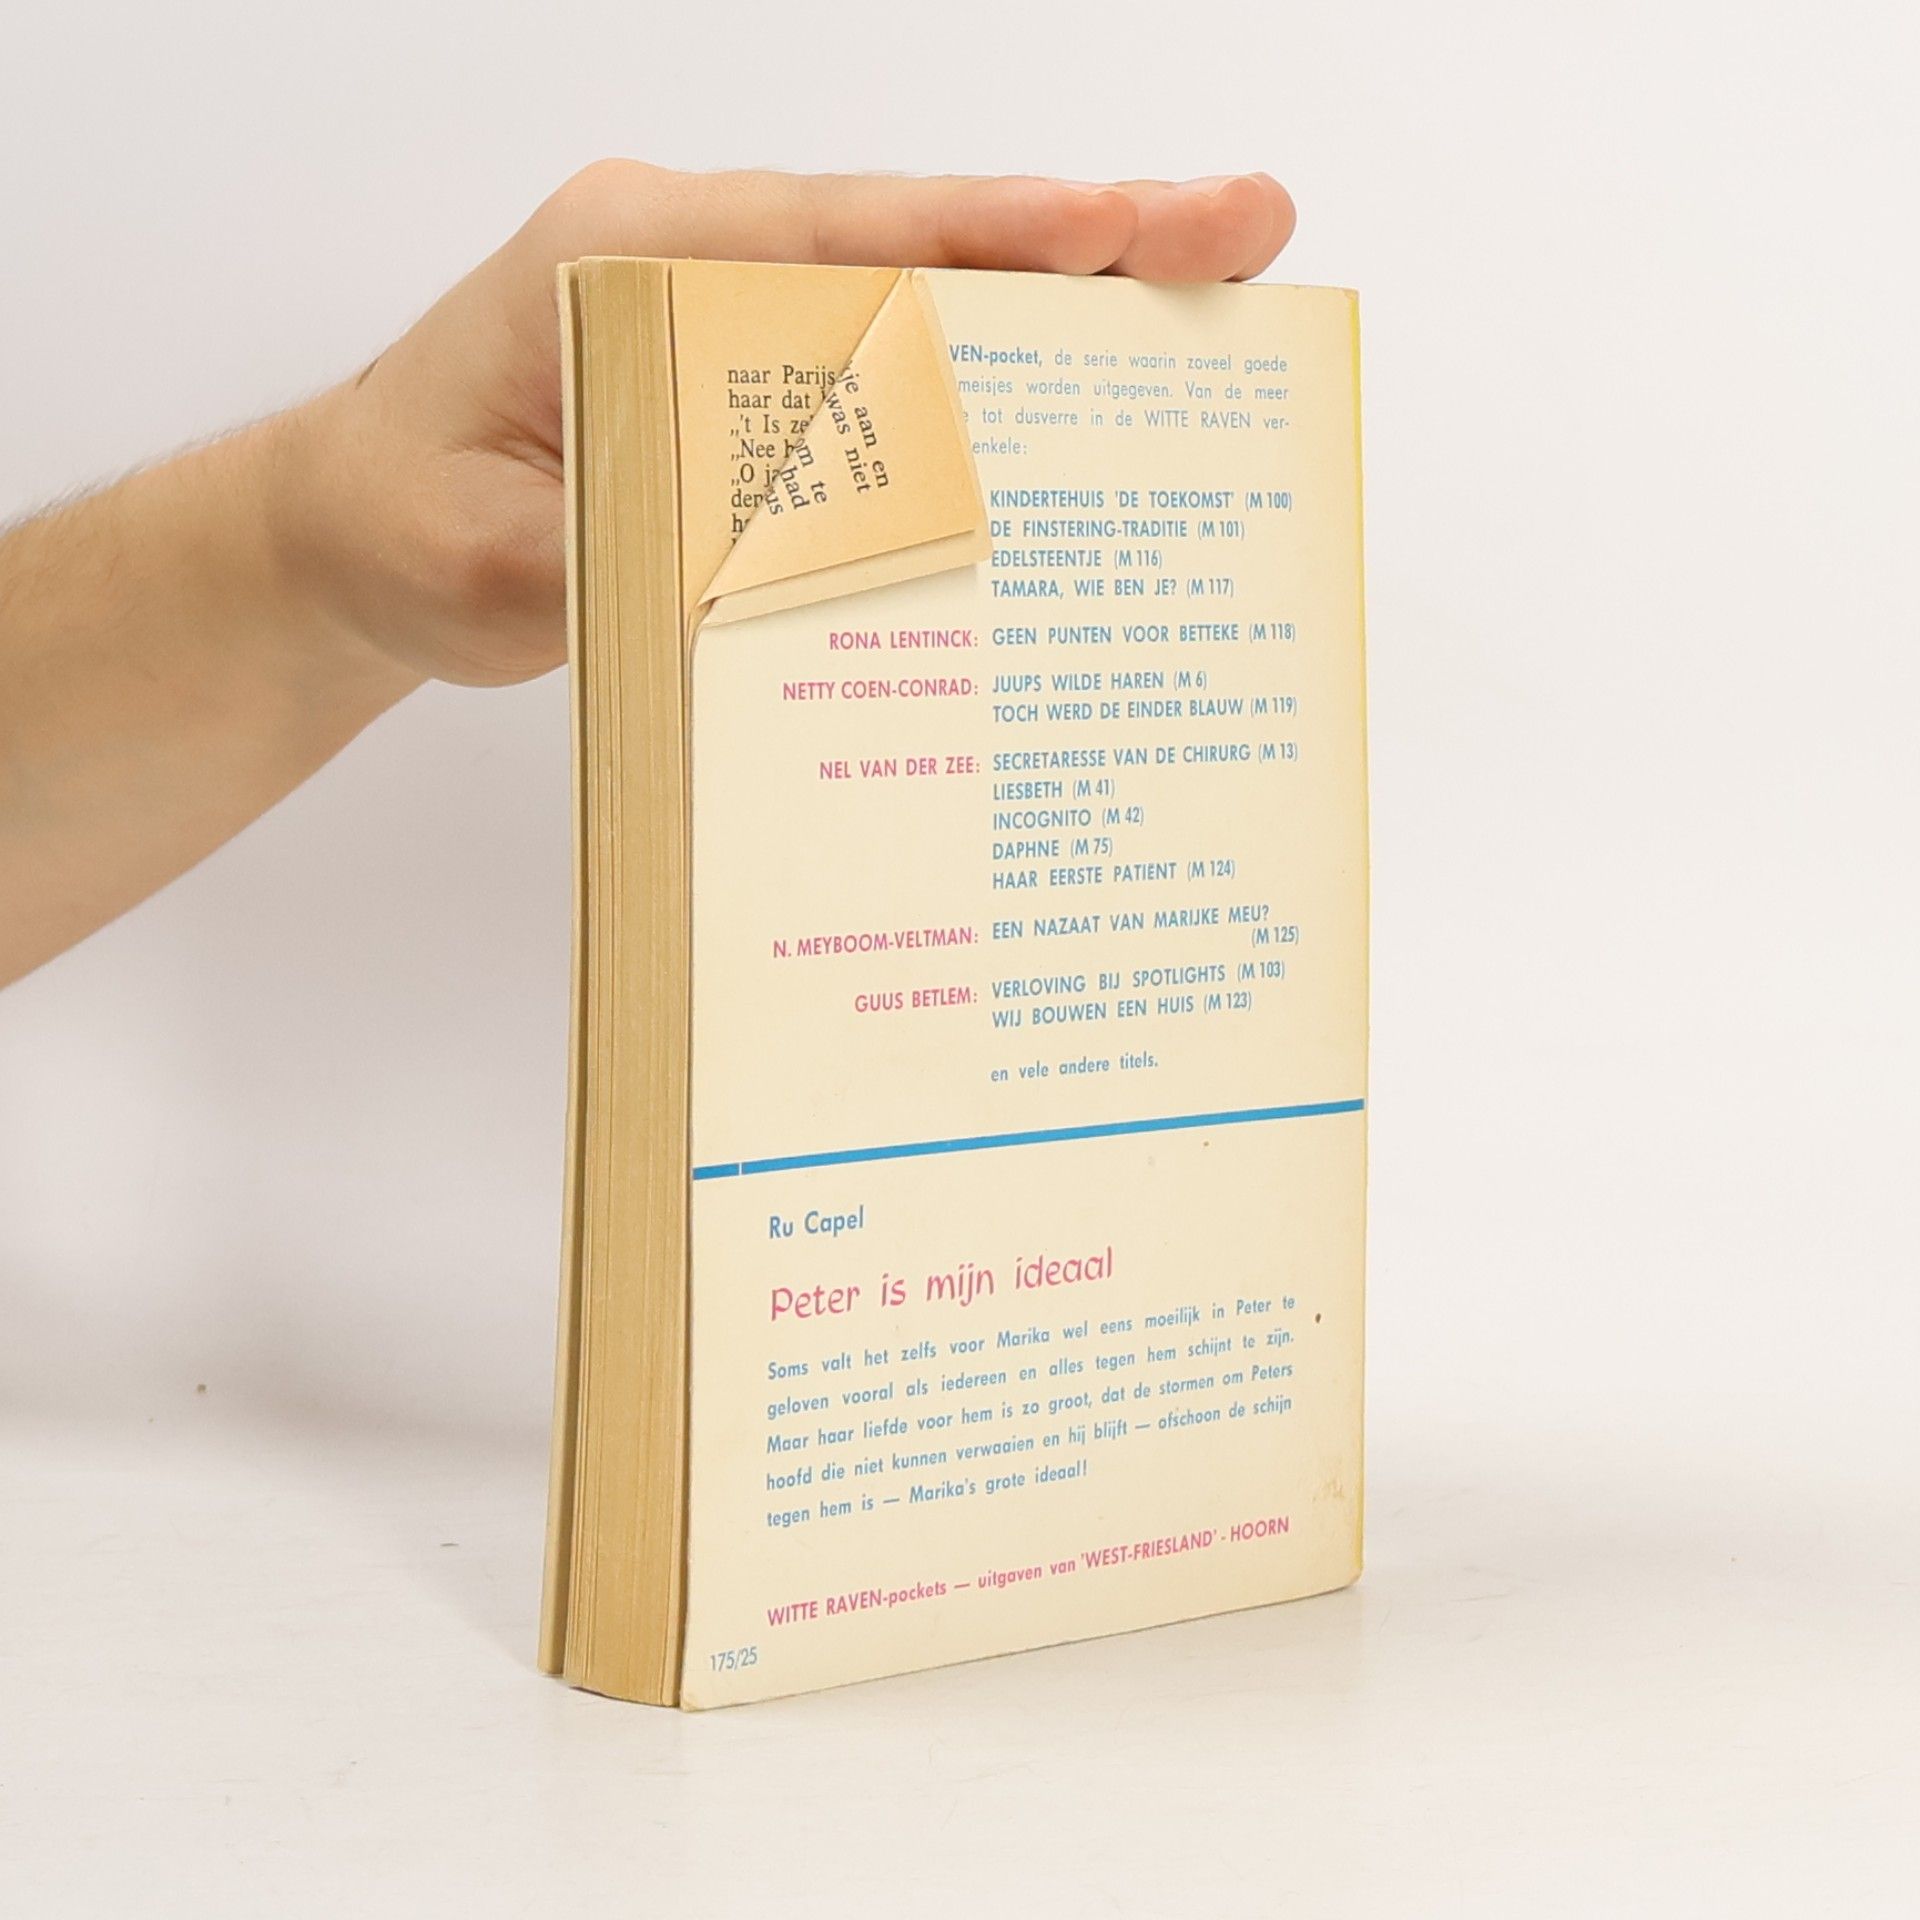 naar Parijs
haar dat
„'t Is
„Nee
„O
je aan en
was niet
te
had
VEN-pocket, de serie waarin zoveel goede
meisjes worden uitgegeven. Van de meer
tot dusverre in de WITTE RAVEN ver-
enkele:
KINDERTEHUIS 'DE TOEKOMST' (M 100)
DE FINSTERING-TRADITIE (M 101)
EDELSTEENTJE (M 116)
TAMARA, WIE BEN JE? (M 117)
RONA LENTINCK: GEEN PUNTEN VOOR BETTEKE (M 118)
NETTY COEN-CONRAD: JUUPS WILDE HAREN (M 6)
TOCH WERD DE EINDER BLAUW (M 119)
NEL VAN DER ZEE: SECRETARESSE VAN DE CHIRURG (M 13)
LIESBETH (M 41)
INCOGNITO (M 42)
DAPHNE (M 75)
HAAR EERSTE PATIËNT (M 124)
N. MEYBOOM-VELTMAN: EEN NAZAAT VAN MARIJKE MEU?
(M 125)
GUUS BETLEM: VERLOVING BIJ SPOTLIGHTS (M 103)
WIJ BOUWEN EEN HUIS (M 123)
en vele andere titels.
Ru Capel
Peter is mijn ideaal
Soms valt het zelfs voor Marika wel eens moeilijk in Peter te
geloven vooral als iedereen en alles tegen hem schijnt te zijn.
Maar haar liefde voor hem is zo groot, dat de stormen om Peters
hoofd die niet kunnen verwaaien en hij blijft — ofschoon de schijn
tegen hem is — Marika's grote ideaal!
WITTE RAVEN-pockets — uitgaven van 'WEST-FRIESLAND' - HOORN
175/25